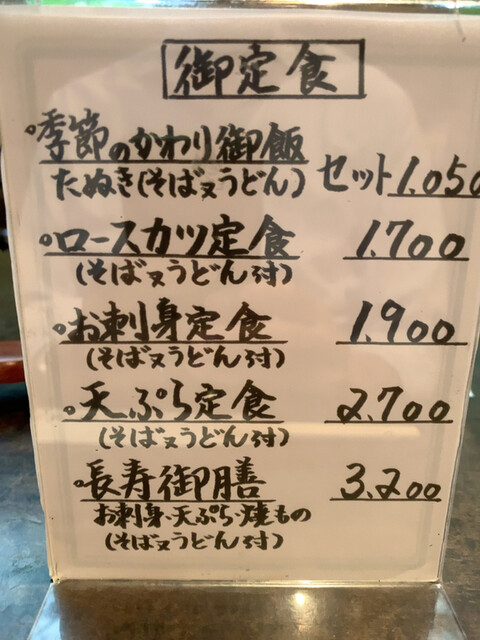 御定食
季節のかわり御飯
たぬき(そば又うどん) セット 1.050
ロースカツ定食 1.700
(そば又うどん付)
お刺身定食 1.900
(そば又うどん付)
天ぷら定食 2.700
(そば又うどん付)
長寿御膳 3.200
お刺身・天ぷら・焼もの
(そば又うどん付)